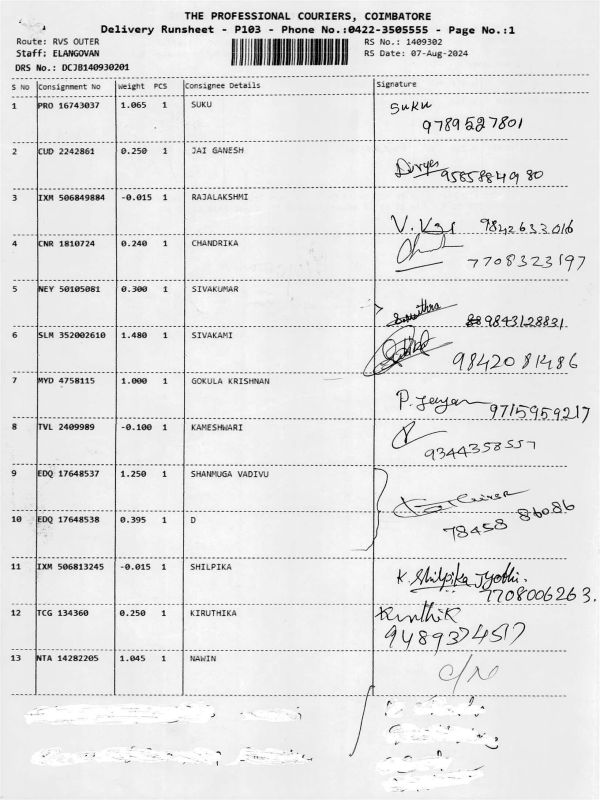 THE PROFESSIONAL COURIERS, COIMBATORE
Delivery Runsheet - P103 - Phone No.:0422-3505555 - Page No.:1
Route: RVS OUTER RS No.: 1409302
Staff: ELANGOVAN RS Date: 07-Aug-2024
DRS No.: DCJB140930201
S No Consignment No Weight PCS Consignee Details Signature
1 PRO 16743037 1.065 1 SUKU Suku
9789527801
2 CUD 2242861 0.250 1 JAI GANESH
9585884980
3 IXM 506849884 -0.015 1 RAJALAKSHMI
V. 9842633016
4 CNR 1810724 0.240 1 CHANDRIKA
7708323197
5 NEY 50105081 0.300 1 SIVAKUMAR
9843128831
6 SLM 352002610 1.480 1 SIVAKAMI
9842081486
7 MYD 4758115 1.000 1 GOKULA KRISHNAN
P. 9715959217
8 TVL 2409989 -0.100 1 KAMESHWARI
9344358557
9 EDQ 17648537 1.250 1 SHANMUGA VADIVU
10 EDQ 17648538 0.395 1 D
78458 86086
11 IXM 506813245 -0.015 1 SHILPIKA K. Shilpika Jyothi.
7708006263.
12 TCG 134360 0.250 1 KIRUTHIKA Kiruthik
9489374517
13 NTA 14282205 1.045 1 NAWIN C/N